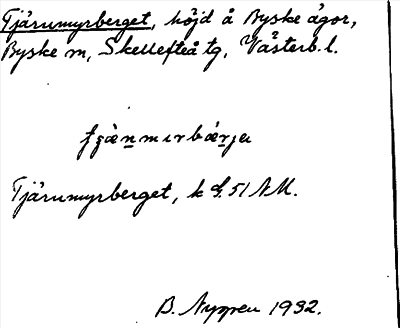 Tjärumyrberget, höjd å Byske ägor,
Byske sn, Skellefteå tg, Västerb. l.
Tjärumyrberget, k bl. 51 NM.
B. Nygren 1932.